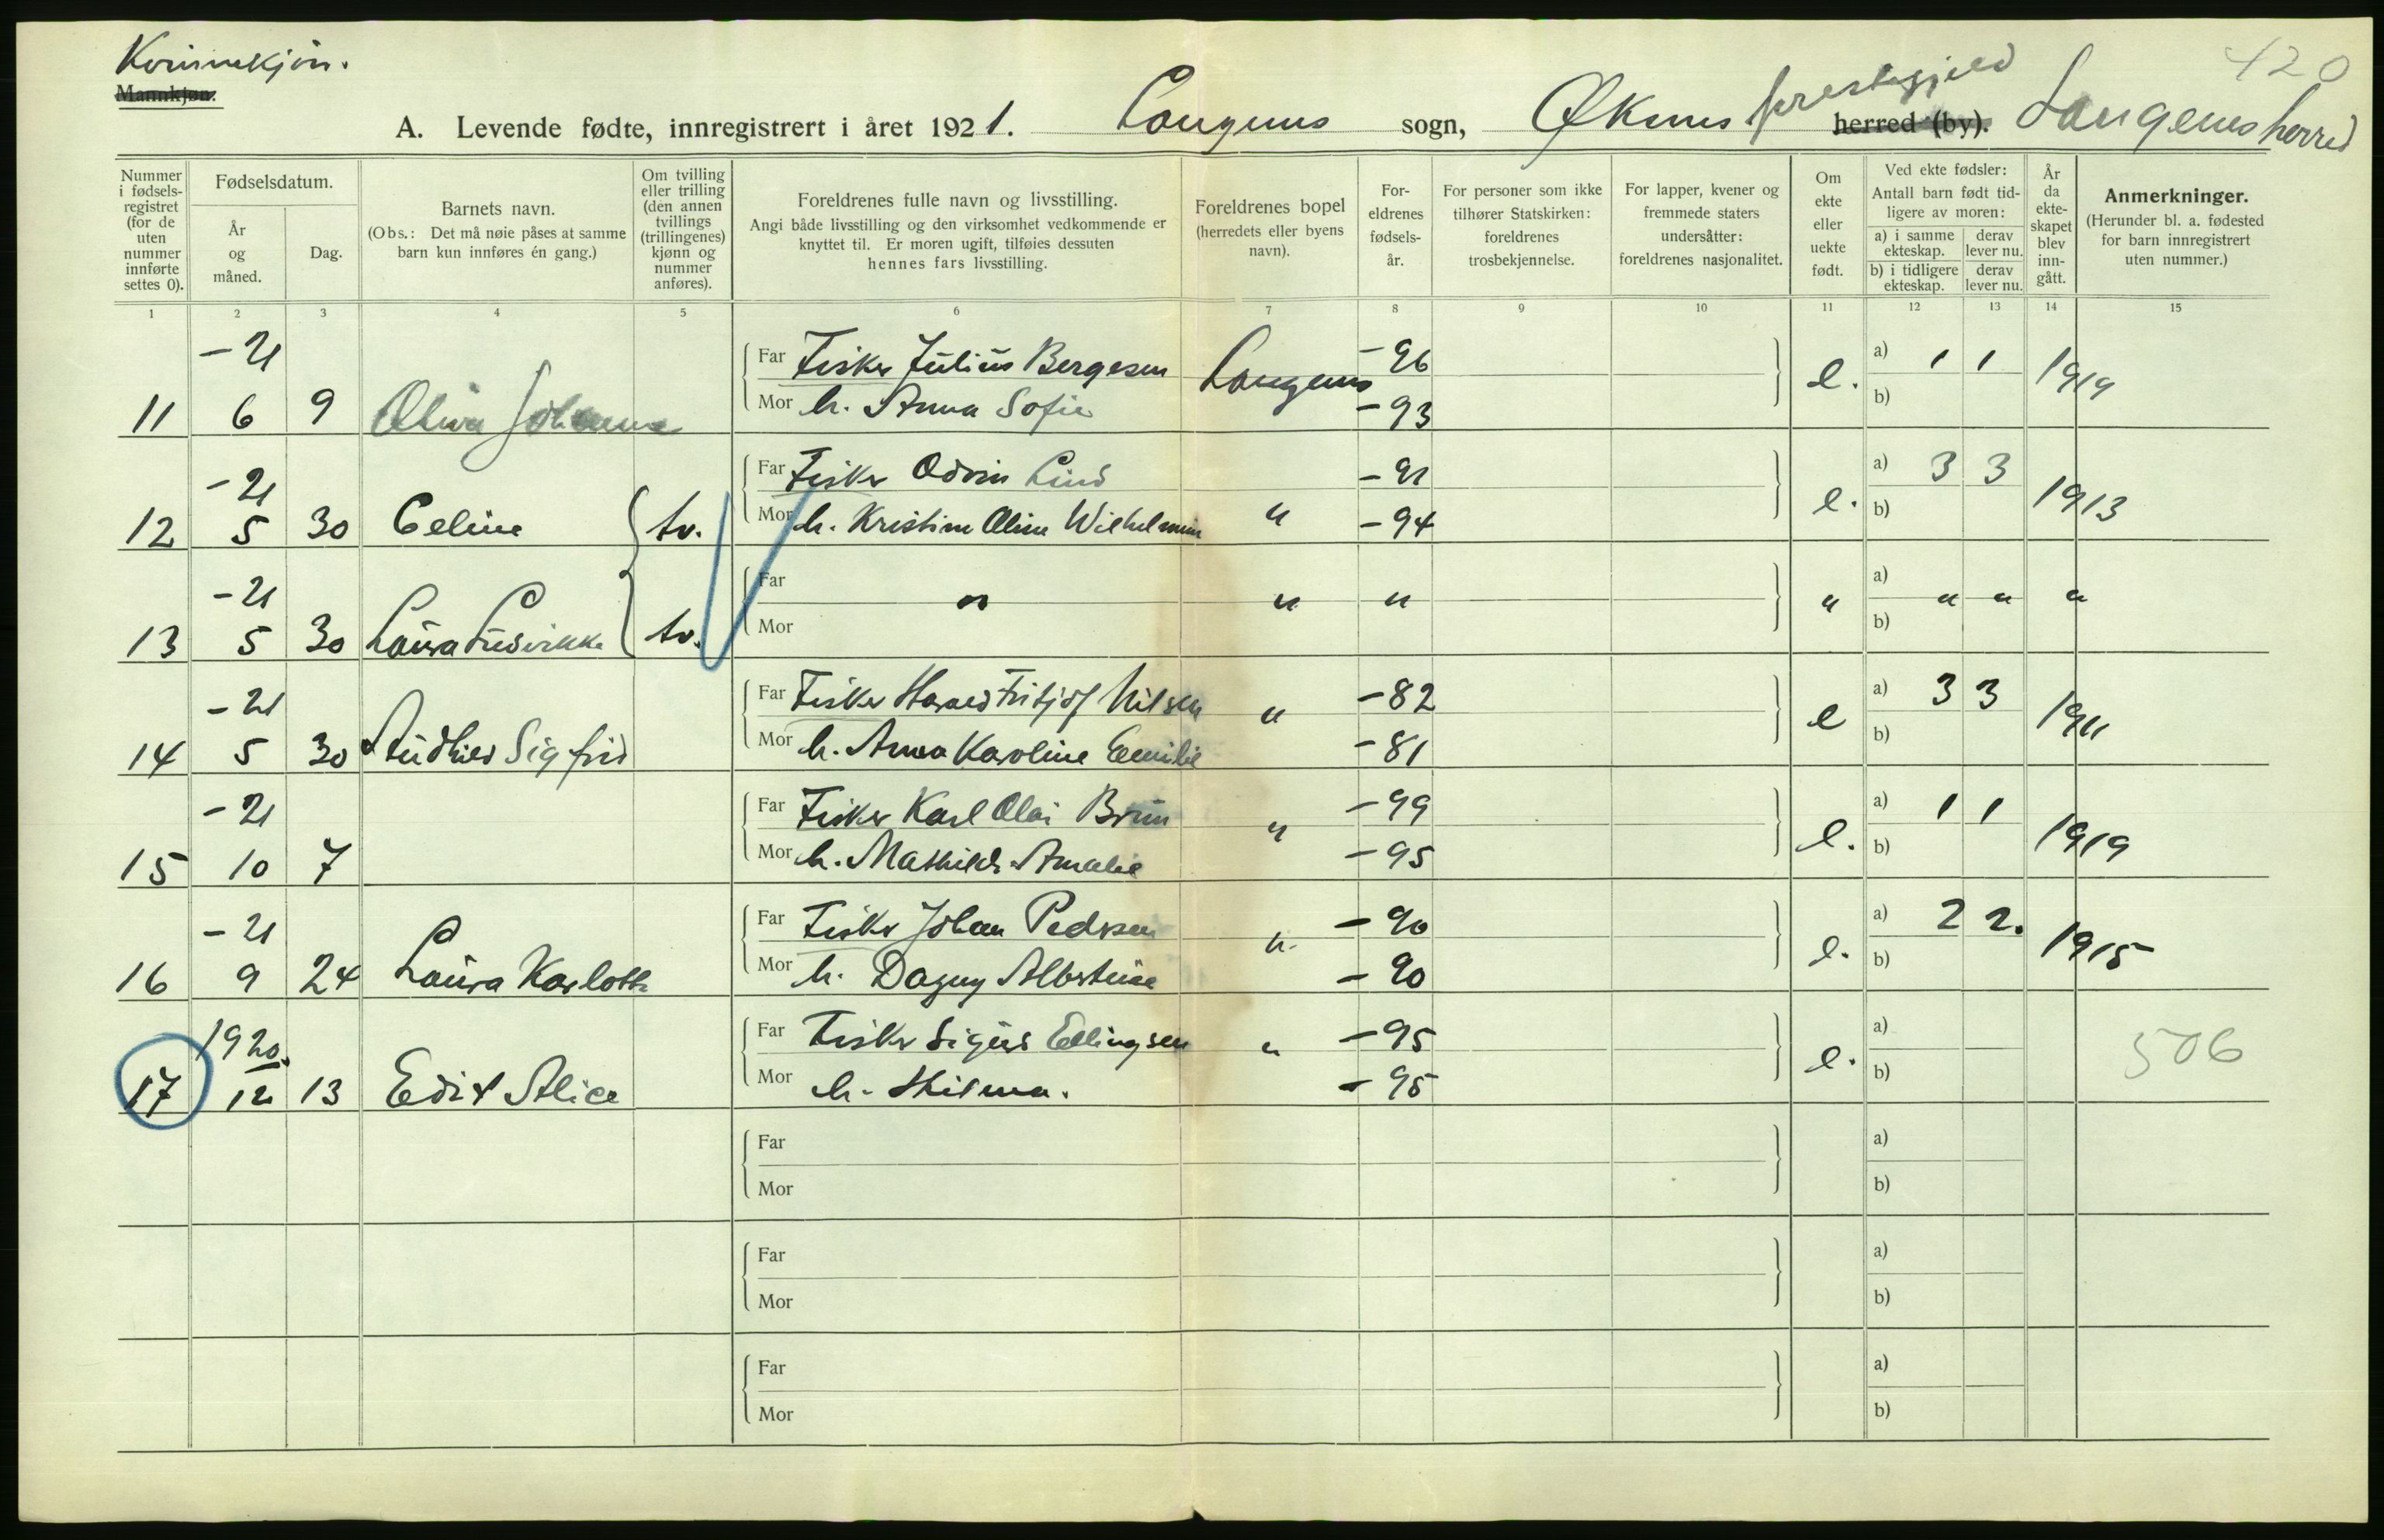 Kvinnekjøn.
Mannkjøn.
420
A. Levende fødte, innregistrert i året 1921. Langenes sogn, Øksnes prestegjeld herred (by). Langenes herred
Nummer i fødsels-registret (for de uten nummer innførte settes 0).
Fødselsdatum.
År og måned.
Dag.
Barnets navn.
(Obs.: Det må nøie påses at samme barn kun innføres én gang.)
Om tvilling eller trilling (den annen tvillings (trillingenes) kjønn og nummer anføres).
Foreldrenes fulle navn og livsstilling.
Angi både livsstilling og den virksomhet vedkommende er knyttet til. Er moren ugift, tilføies dessuten hennes fars livsstilling.
Foreldrenes bopel (herredets eller byens navn).
For-eldrenes fødsels-år.
For personer som ikke tilhører Statskirken: foreldrenes trosbekjennelse.
For lapper, kvener og fremmede staters undersåtter: foreldrenes nasjonalitet.
Om ekte eller uekte født.
Ved ekte fødsler:
Antall barn født tid-ligere av moren:
a) i samme ekteskap. derav lever nu.
b) i tidligere ekteskap. derav lever nu.
År da ekte-skapet blev inn-gått.
Anmerkninger.
(Herunder bl. a. fødested for barn innregistrert uten nummer.)
1 2 3 4 5 6 7 8 9 10 11 12 13 14 15
-21 Far Fisker Julius Bergesen Langenes -96 e. a) 1 1 1919
11 6 9 Oliva Johanna Mor h. Anna Sofie -93 b)
-21 Far Fisker Odvin Lind -91 e. a) 3 3 1913
12 5 30 Celine tv. Mor h. Kristine Oline Wilhelmine " -94 b)
-21 Far " " " " a) " " "
13 5 30 Laura Ludvikke tv. Mor b)
-21 Far Fisker Harald Fritjof Nilsen " -82 e a) 3 3 1911
14 5 30 Sigfrid Mor h. Anna Karoline Emilie -81 b)
-21 Far Fisker Karl Olai Brun " -99 e. a) 1 1 1919
15 10 7 Mor h. Mathilde Amalie -95 b)
-21 Far Fisker Johan Pedersen " -90 e. a) 2 2. 1915
16 9 24 Laura Karlotte Mor h. Dagny Albertine -90 b)
1920. Far Fisker Sigurd Ellingsen " -95 e. a) 506
17 12 13 Edit Alice Mor h. Hilma. -95 b)
Far a)
Mor b)
Far a)
Mor b)
Far a)
Mor b)